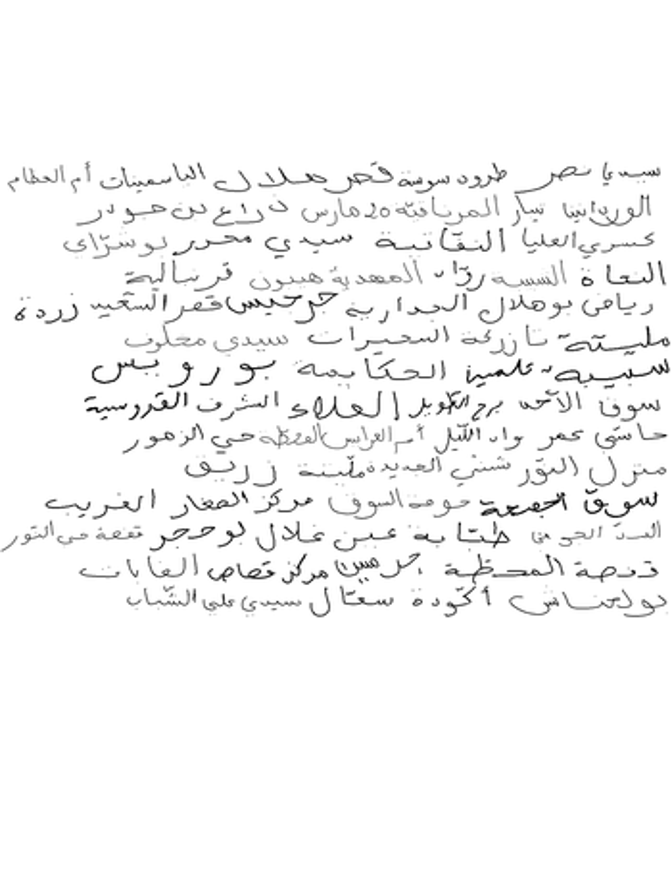 سيدي نصر طرود سوسة قصر هلال الياسمينات أم العظام
الوردانين نيبار المريافتة 20 مارس ذراع بن جودر
كسرى العليا النقانية سيدي محرر بوشراي
النعاة النسيم رواد المهدية هيبون قرنبالية
رياض بوهلال الجدارية جرجيس قصر السعيد زردة
مليتة تازركة السعيرات سيدي مخلوف
سبيبة علمين الحكايمة بورويس
سوق الأحد برج الطويل العلاء الشرف القدوسية
حاسي عمر واد الليل أم العرايس المحطة حي الزهور
منزل النور شنني الجديدة مليتة زريق
سوق الجمعة حومة السوق مركز الصغار الغريب
السد الجوفي طتاية عين غلال بوحجر قفصة حي النور
قفصة المحطة جرجيس مركز قصاص الغابات
بولعناش أكودة سعتال سيدي علي الشباب